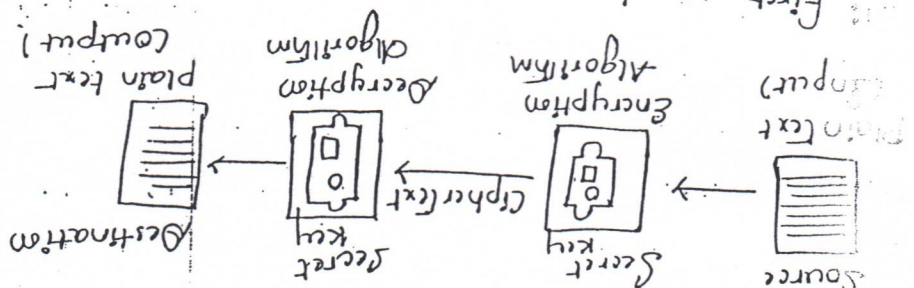 Source
Secret
Key
Cipher Text
Secret
Key
Destination
Plain Text
(Input)
Encryption
Algorithm
Decryption
Algorithm
Plain text
(output)
First